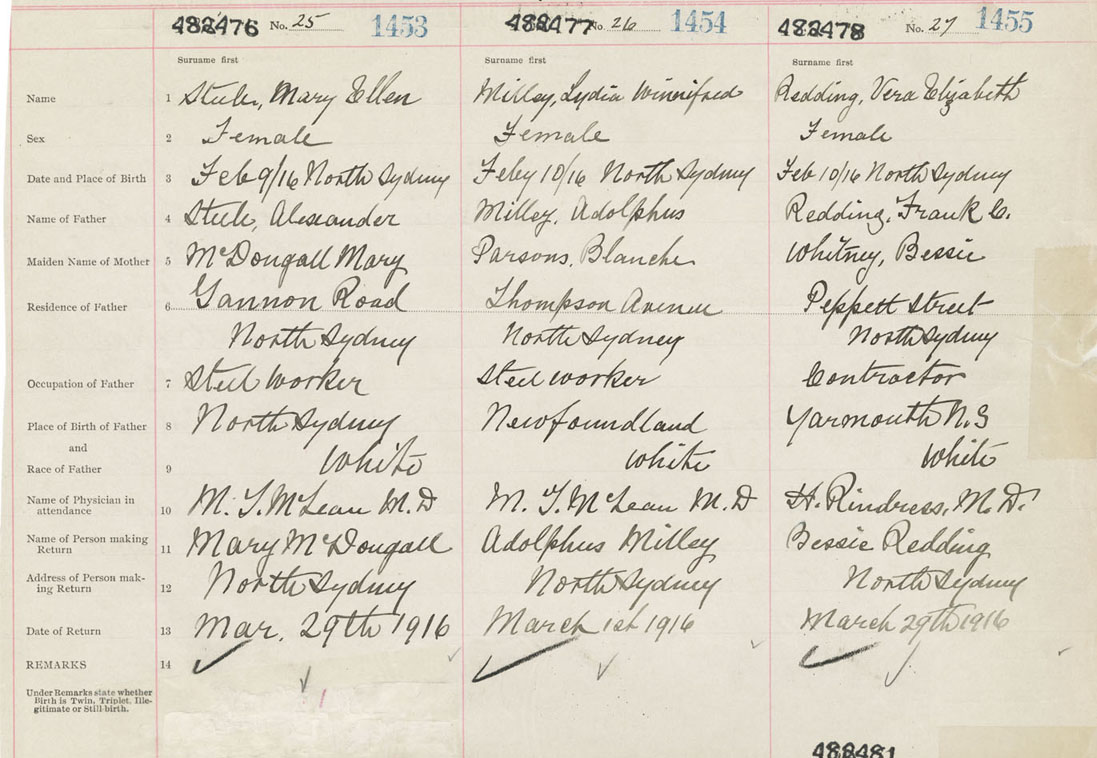 488476 No. 25 1453 488477 No. 26 1454 488478 No. 27 1455
Surname first Surname first Surname first
Name 1 Steele, Mary Ellen Milley, Lydia Winnifred Redding, Vera Elizabeth
Sex 2 Female Female Female
Date and Place of Birth 3 Feb 9/16 North Sydney Feby 10/16 North Sydney Feb 10/16 North Sydney
Name of Father 4 Steele, Alexander Milley, Adolphus Redding, Frank C.
Maiden Name of Mother 5 McDougall Mary Parsons, Blanche Whitney, Bessie
Residence of Father 6 Gannon Road Thompson Avenue Peppett Street
North Sydney North Sydney North Sydney
Occupation of Father 7 Steel worker Steel worker Contractor
Place of Birth of Father 8 North Sydney Newfoundland Yarmouth N.S
and
Race of Father 9 White White White
Name of Physician in
attendance 10 M. T. McLean M.D M. T. McLean M.D H. Rindress, M.D.
Name of Person making
Return 11 Mary McDougall Adolphus Milley Bessie Redding
Address of Person mak-
ing Return 12 North Sydney North Sydney North Sydney
Date of Return 13 Mar. 29th 1916 March 1st 1916 March 29th 1916
REMARKS 14
Under Remarks state whether
Birth is Twin, Triplet, Ille-
gitimate or Still-birth.
488481